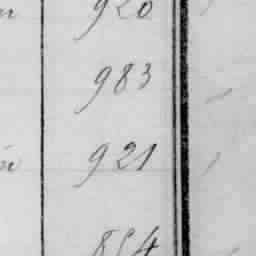 920
983
921
854